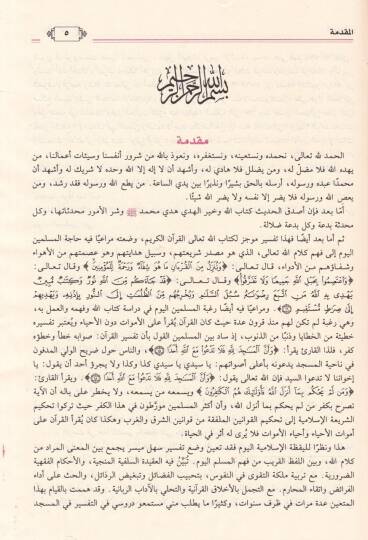 المقدمة
٥
بسم الله الرحمن الرحيم
مقدمة
الحمد لله تعالى، نحمده ونستعينه، ونستغفره، ونعوذ بالله من شرور أنفسنا وسيئات أعمالنا، من
يهده الله فلا مضل له، ومن يضلل فلا هادي له، وأشهد أن لا إله إلا الله وحده لا شريك له وأشهد أن
محمدًا عبده ورسوله، أرسله بالحق بشيرًا ونذيرًا بين يدي الساعة. من يطع الله ورسوله فقد رشد، ومن
يعص الله ورسوله فلا يضر إلا نفسه ولا يضر الله شيئًا.
أمّا بعد فإن أصدق الحديث كتاب الله وخير الهدي هدي محمد ﷺ وشر الأمور محدثاتها، وكل
محدثة بدعة وكل بدعة ضلالة.
ثم أما بعد أيضًا فهذا تفسير موجز لكتاب الله تعالى القرآن الكريم، وضعته مراعيًا فيه حاجة المسلمين
اليوم إلى فهم كلام الله تعالى، الذي هو مصدر شريعتهم، وسبيل هدايتهم وهو عصمتهم من الأهواء
وشفاؤهم من الأدواء، قال تعالى: ﴿وَنُنَزِّلُ مِنَ الْقُرْءَانِ مَا هُوَ شِفَاءٌ وَرَحْمَةٌ لِلْمُؤْمِنِينَ﴾ وقال تعالى:
﴿وَاعْتَصِمُوا بِحَبْلِ اللَّهِ جَمِيعًا وَلَا تَفَرَّقُوا﴾ وقال تعالى: ﴿قَدْ جَاءَكُم مِّنَ اللَّهِ نُورٌ وَكِتَابٌ مُّبِينٌ
يَهْدِي بِهِ اللَّهُ مَنِ اتَّبَعَ رِضْوَانَهُ سُبُلَ السَّلَامِ وَيُخْرِجُهُم مِّنَ الظُّلُمَاتِ إِلَى النُّورِ بِإِذْنِهِ وَيَهْدِيهِمْ
إِلَى صِرَاطٍ مُّسْتَقِيمٍ﴾. ومراعيًا فيه أيضًا رغبة المسلمين اليوم في دراسة كتاب الله وفهمه والعمل به،
وهي رغبة لم تكن لهم منذ قرون عدة حيث كان القرآن يُقرأ على الأموات دون الأحياء ويُعتبر تفسيره
خطيئة من الخطايا وذنبًا من الذنوب، إذ ساد بين المسلمين القول بأن تفسير القرآن: صوابه خطأ وخطؤه
كفر، فلذا القارئ يقرأ: ﴿وَأَنَّ الْمَسَاجِدَ لِلَّهِ فَلَا تَدْعُوا مَعَ اللَّهِ أَحَدًا﴾، والناس حول ضريح الولي المدفون
في ناحية المسجد يدعونه بأعلى أصواتهم: يا سيدي يا سيدي كذا وكذا ولا يجرؤ أحد أن يقول: يا
إخواننا لا تدعوا السيد فإن الله تعالى يقول: ﴿وَأَنَّ الْمَسَاجِدَ لِلَّهِ فَلَا تَدْعُوا مَعَ اللَّهِ أَحَدًا﴾. ويقرأ القارئ:
﴿وَمَن لَّمْ يَحْكُم بِمَا أَنزَلَ اللَّهُ فَأُولَئِكَ هُمُ الْكَافِرُونَ﴾ ويسمعه من يسمعه، ولا يخطر على باله أن الآية
تصرح بكفر من لم يحكم بما أنزل الله، وأن أكثر المسلمين مورّطون في هذا الكفر حيث تركوا تحكيم
الشريعة الإسلامية إلى تحكيم القوانين الملفقة من قوانين الشرق والغرب وهكذا كان يُقرأ القرآن على
أموات الأحياء وأحياء الأموات فلا يُرى له أثر في الحياة.
هذا ونظرًا لليقظة الإسلامية اليوم فقد تعين وضع تفسير سهل ميسر يجمع بين المعنى المراد من
كلام الله، وبين اللفظ القريب من فهم المسلم اليوم. تُبيَّن فيه العقيدة السلفية المنجية، والأحكام الفقهية
الضرورية. مع تربية ملكة التقوى في النفوس، بتحبيب الفضائل وتبغيض الرذائل، والحث على أداء
الفرائض واتقاء المحارم. مع التجمل بالأخلاق القرآنية والتحلي بالآداب الربانية. وقد هممت بالقيام بهذا
المتعين عدة مرات في ظرف سنوات، وكثيرًا ما يطلب مني مستمعو دروسي في التفسير في المسجد